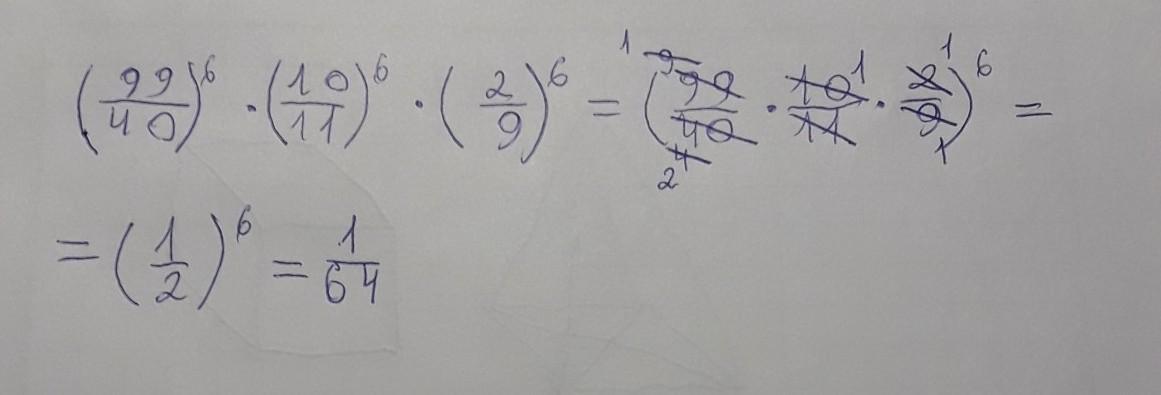 (99/40)^6 · (10/11)^6 · (2/9)^6 = (1 9 99/40 4 2 · 10 1/11 · 2 1/9 1)^6 =
= (1/2)^6 = 1/64